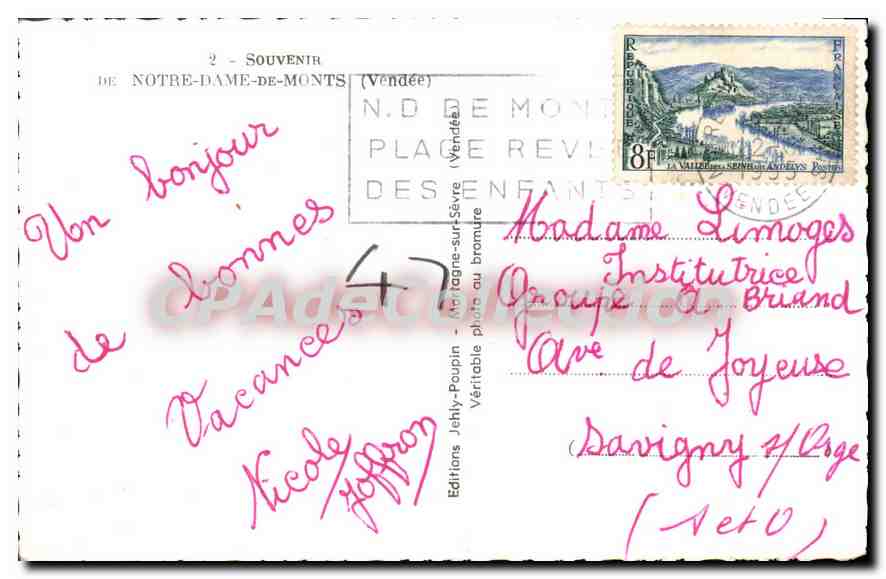 2 - SOUVENIR
DE NOTRE-DAME-DE-MONTS (Vendée)
N.D DE MONT
PLAGE REVE
DES ENFANTS
REPUBLIQUE
FRANÇAISE
8F
LA VALLEE DE LA SEINE AUX ANDELYS POSTES
1955
VENDEE
Un bonjour
de bonnes
Vacances
Nicole
Joffron
47
Editions Jehly-Poupin - Mortagne-sur-Sèvre (Vendée)
Véritable photo au bromure
Madame Limoges
Institutrice
Groupe A. Briand
Ave. de Joyeuse
Savigny s/Orge
(S et O)
CPAdeCollection